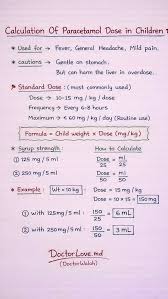 Calculation Of Paracetamol Dose in Children
* Used for → Fever, General Headache, Mild pain.
* cautions → Gentle on stomach.
But can harm the liver in overdose.
Standard Dose : (most commonly used)
Dose → 10-15 mg / kg / dose
Frequency → Every 6-8 hours
Maximum → < 60 mg / kg / day (Routine)
Formula = Child weight × Dose (mg/kg)
* Syrup strength : How to Calculate
① 125 mg / 5 ml Dose = ml / 25
② 250 mg / 5 ml Dose = ml / 50
* Example : Wt = 10 kg Dose = 15 mg / kg
Dose = 15 × 10 = 150 mg
① with 125 mg / 5 ml : 150 / 25 = 6 mL
② with 250 mg / 5 ml : 150 / 50 = 3 mL
DoctorLove.md
(DoctorWalah)